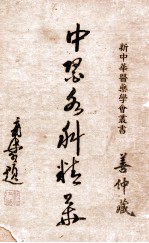 新中华醫藥學會叢書
善仲藏
中医各科精華
題